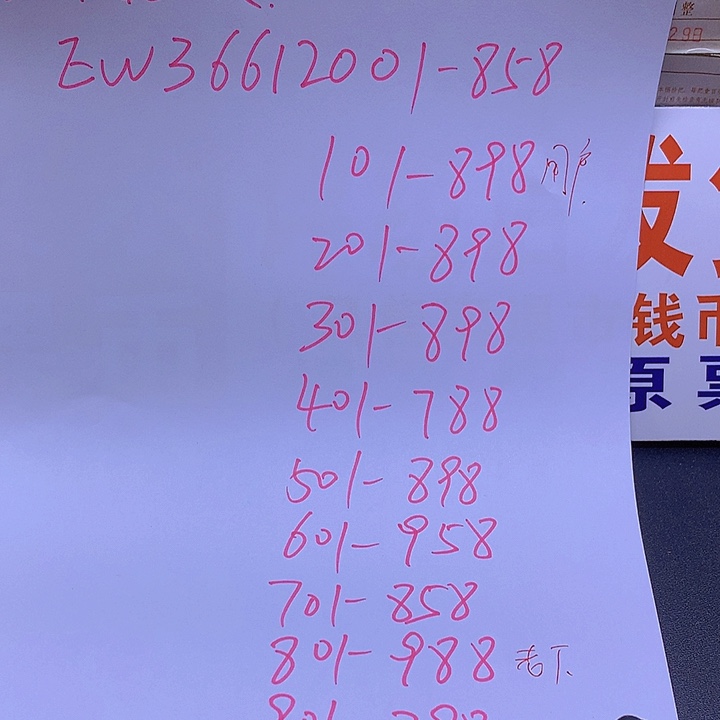 EW36612001-858
101-898
201-898
301-898
401-788
501-898
601-958
701-858
801-988
发
钱币
原票